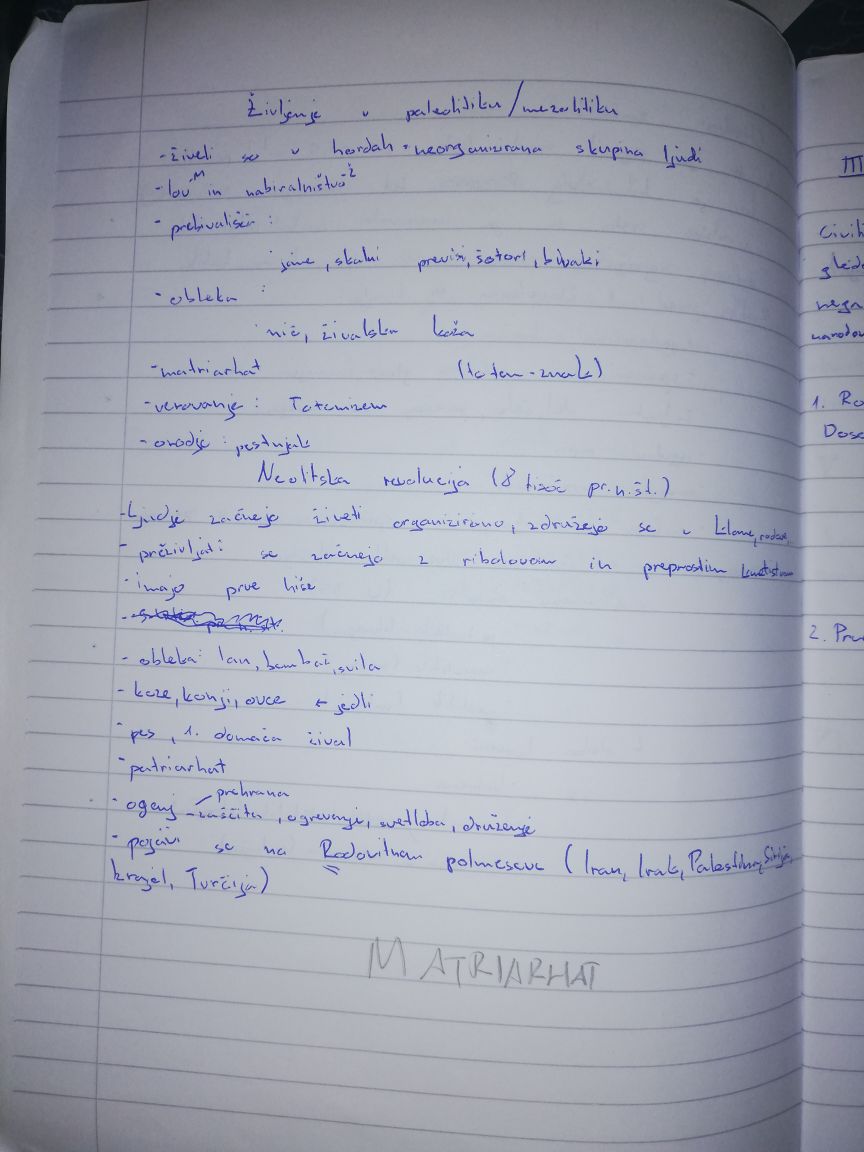 Življenje v paleolitiku/mezolitiku
- živeli so v hordah - neorganizirana skupina ljudi
- lov-M in nabiralništvo-Ž
- prebivališča:
jame, skalni previsi, šotori, bivaki
- obleka :
nič, živalska koža
- matriarhat (totem - znak)
- verovanje: Totemizem
- orodje : pestnjak
Neolitska revolucija (8 tisoč pr.n.št.)
- Ljudje začnejo živeti organizirano, združejo se v klane, rodove
- preživljati se začnejo z ribolovom in preprostim kmetijstvom
- imajo prve hiše
-
- obleka: lan, bombaž, svila
- koze, konji, ovce ← jedli
- pes, 1. domača žival
- patriarhat
prehrana
- ogenj - zaščita, ogrevanje, svetloba, druženje
- pojavi se na Rodovitnem polmesecu (Iran, Irak, Palestina, Sirija,
Izrael, Turčija)
MATRIARHAT
III
Civili
gleda
nega
narodov
1. Ro
Dose
2. Prv